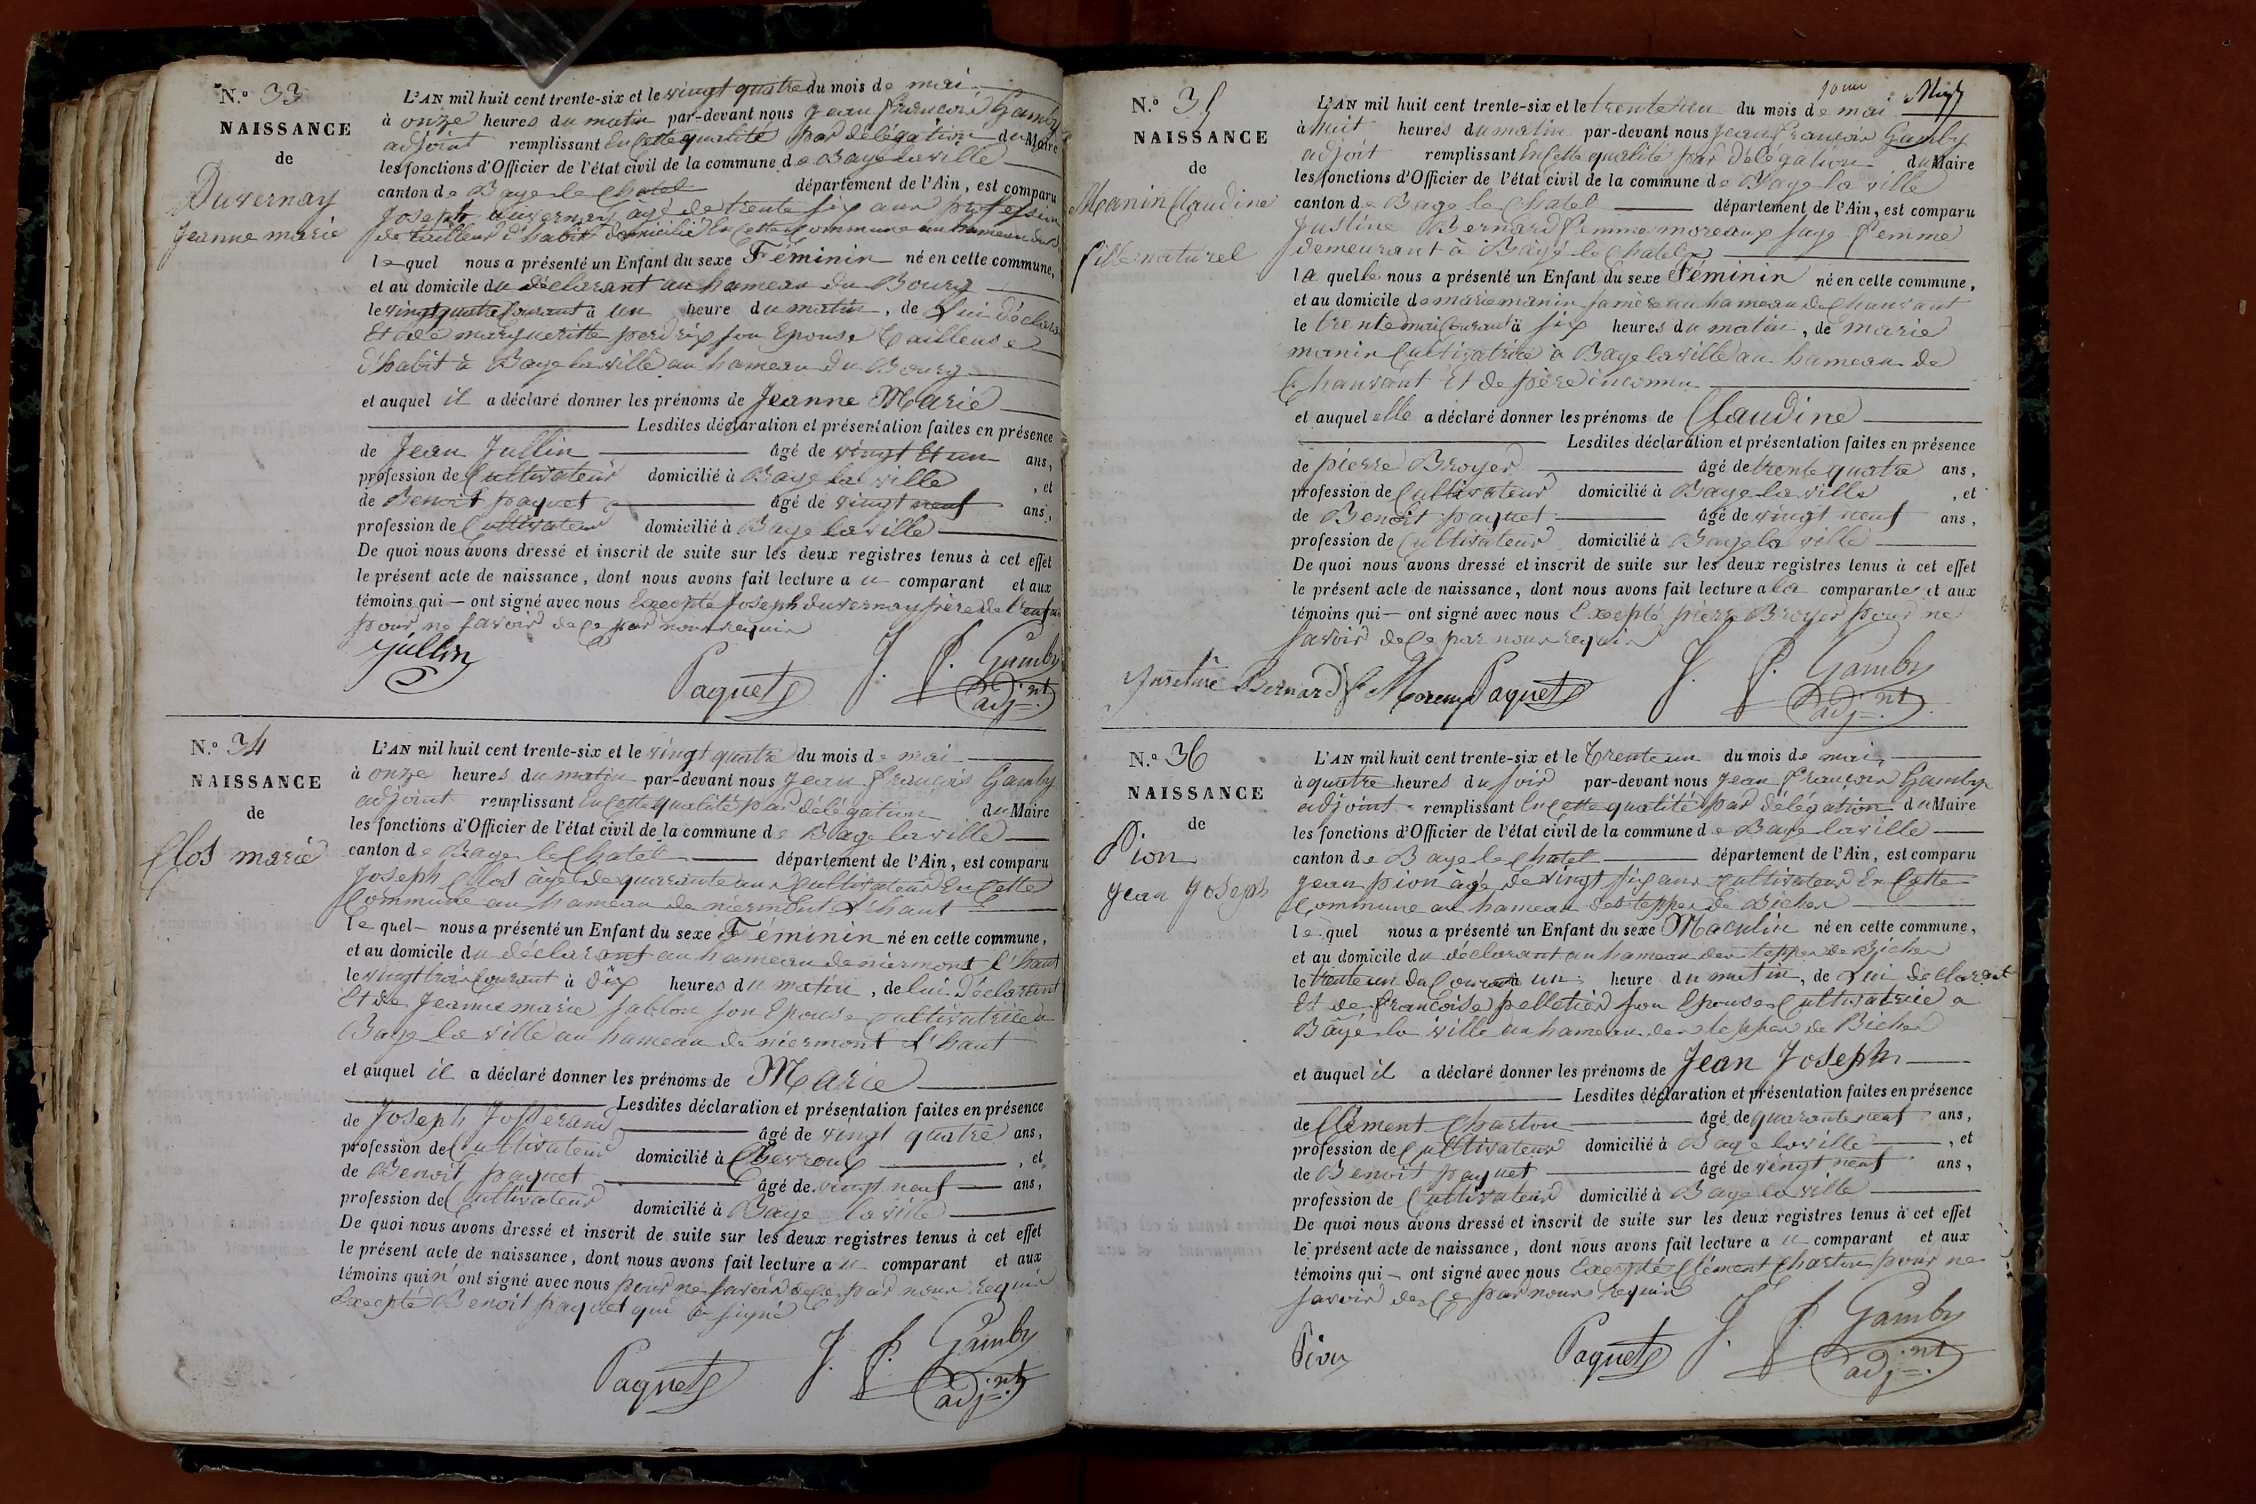 N.o 33
NAISSANCE
de
Duvernay
Jeanne marie
L'AN mil huit cent trente-six et le vingt quatre du mois de mai
à onze heures du matin par-devant nous Jean François Gamby
adjoint remplissant En Cette qualité par délégation du Maire
les fonctions d'Officier de l'état civil de la commune de Bagé la ville
canton de Bage le Chatel département de l'Ain, est comparu
Joseph Duvernay âgé de trente six ans profession
de tailleur d'habit domicilié En Cette Commune au hameau du
le quel nous a présenté un Enfant du sexe Féminin né en cette commune,
et au domicile du déclarant au hameau du Bourg
le vingt quatre Courant à un heure du matin, de Lui déclarant
Et de margueritte perdrix son Epouse tailleuse
d'habit à Bage la ville au hameau du Bourg
et auquel il a déclaré donner les prénoms de Jeanne Marie
Lesdites déclaration et présentation faites en présence
de Jean Jullin âgé de vingt Et un ans,
profession de Cultivateur domicilié à Bage la ville, et
de Benoit paquet âgé de vingt neuf ans,
profession de Cultivateur domicilié à Bage la ville
De quoi nous avons dressé et inscrit de suite sur les deux registres tenus à cet effet
le présent acte de naissance, dont nous avons fait lecture au comparant et aux
témoins qui ont signé avec nous Excepté Joseph duvernay père de l'enfant
pour ne savoir de Ce par nous requis
Jullin
Paquet
J. F. Gamby
adj.nt
N.o 34
NAISSANCE
de
Clos marie
L'AN mil huit cent trente-six et le vingt quatre du mois de mai
à onze heures du matin par-devant nous Jean François Gamby
adjoint remplissant En Cette qualité par délégation du Maire
les fonctions d'Officier de l'état civil de la commune de Bage la ville
canton de Bage le Chatel département de l'Ain, est comparu
Joseph Clos âgé de quarante ans Cultivateur En Cette
Commune au hameau de niermont L'haut
le quel nous a présenté un Enfant du sexe Féminin né en cette commune,
et au domicile du déclarant au hameau de niermont l'haut
le vingt trois Courant à dix heures du matin, de lui Déclarant
Et de Jeanne marie Sablon son Epouse Cultivatrice a
Bage la ville au hameau de niermont L'haut
et auquel il a déclaré donner les prénoms de Marie
Lesdites déclaration et présentation faites en présence
de Joseph Josserand âgé de vingt quatre ans,
profession de Cultivateur domicilié à Chevroux, et
de Benoit paquet âgé de vingt neuf ans,
profession de Cultivateur domicilié à Bage la ville
De quoi nous avons dressé et inscrit de suite sur les deux registres tenus à cet effet
le présent acte de naissance, dont nous avons fait lecture au comparant et aux
témoins qui n'ont signé avec nous pour ne savoir de Ce par nous requis
Excepté Benoit paquet qui a signé
Paquet
J. F. Gamby
adj.nt
N.o 35
NAISSANCE
de
Manin Claudine
fille naturel
L'AN mil huit cent trente-six et le trente un du mois de mai
à huit heures du matin par-devant nous Jean François Gamby
adjoit remplissant En Cette qualité par Délégation du Maire
les fonctions d'Officier de l'état civil de la commune de Bage la ville
canton de Bage le Chatel département de l'Ain, est comparu
Justine Bernard femme moreaux sage femme
demeurant à Bagé le Chatel
la quelle nous a présenté un Enfant du sexe Féminin né en cette commune,
et au domicile de marie manin sa mère au hameau de Chauvant
le trente mai Courant à six heures du matin, de marie
manin Cultivatrice à Bage la ville au hameau de
Chauvant Et de père inconnu
et auquel elle a déclaré donner les prénoms de Claudine
Lesdites déclaration et présentation faites en présence
de pierre Broyer âgé de trente quatre ans,
profession de Cultivateur domicilié à Bage la ville, et
de Benoit paquet âgé de vingt neuf ans,
profession de Cultivateur domicilié à Bage la ville
De quoi nous avons dressé et inscrit de suite sur les deux registres tenus à cet effet
le présent acte de naissance, dont nous avons fait lecture a la comparante et aux
témoins qui ont signé avec nous Excepté pierre Broyer pour ne
savoir de Ce par nous requis
Bernard f. Moreau
Paquet
J. F. Gamby
adj.nt
N.o 36
NAISSANCE
de
Pion
Jean Joseph
L'AN mil huit cent trente-six et le trente un du mois de mai
à quatre heures du soir par-devant nous Jean François Gamby
adjoint remplissant En Cette qualité par délégation du Maire
les fonctions d'Officier de l'état civil de la commune de Bage la ville
canton de Bage le Chatel département de l'Ain, est comparu
Jean pion âgé de vingt six ans Cultivateur En Cette
Commune au hameau des teppes de Bicher
le quel nous a présenté un Enfant du sexe Maculin né en cette commune,
et au domicile du déclarant au hameau des teppes de Bicher
le trente un du Courant à un heure du matin, de Lui declarant
Et de françoise pelletier son Epouse Cultivatrice a
Bagé la ville au hameau des teppes de Bicher
et auquel il a déclaré donner les prénoms de Jean Joseph
Lesdites déclaration et présentation faites en présence
de Clément Charton âgé de quarante neuf ans,
profession de Cultivateur domicilié à Bage la ville, et
de Benoit paquet âgé de vingt neuf ans,
profession de Cultivateur domicilié à Bage la ville
De quoi nous avons dressé et inscrit de suite sur les deux registres tenus à cet effet
le présent acte de naissance, dont nous avons fait lecture au comparant et aux
témoins qui ont signé avec nous Excepté Clément Charton pour ne
savoir de Ce par nous requis
Pion
Paquet
J. F. Gamby
adj.nt